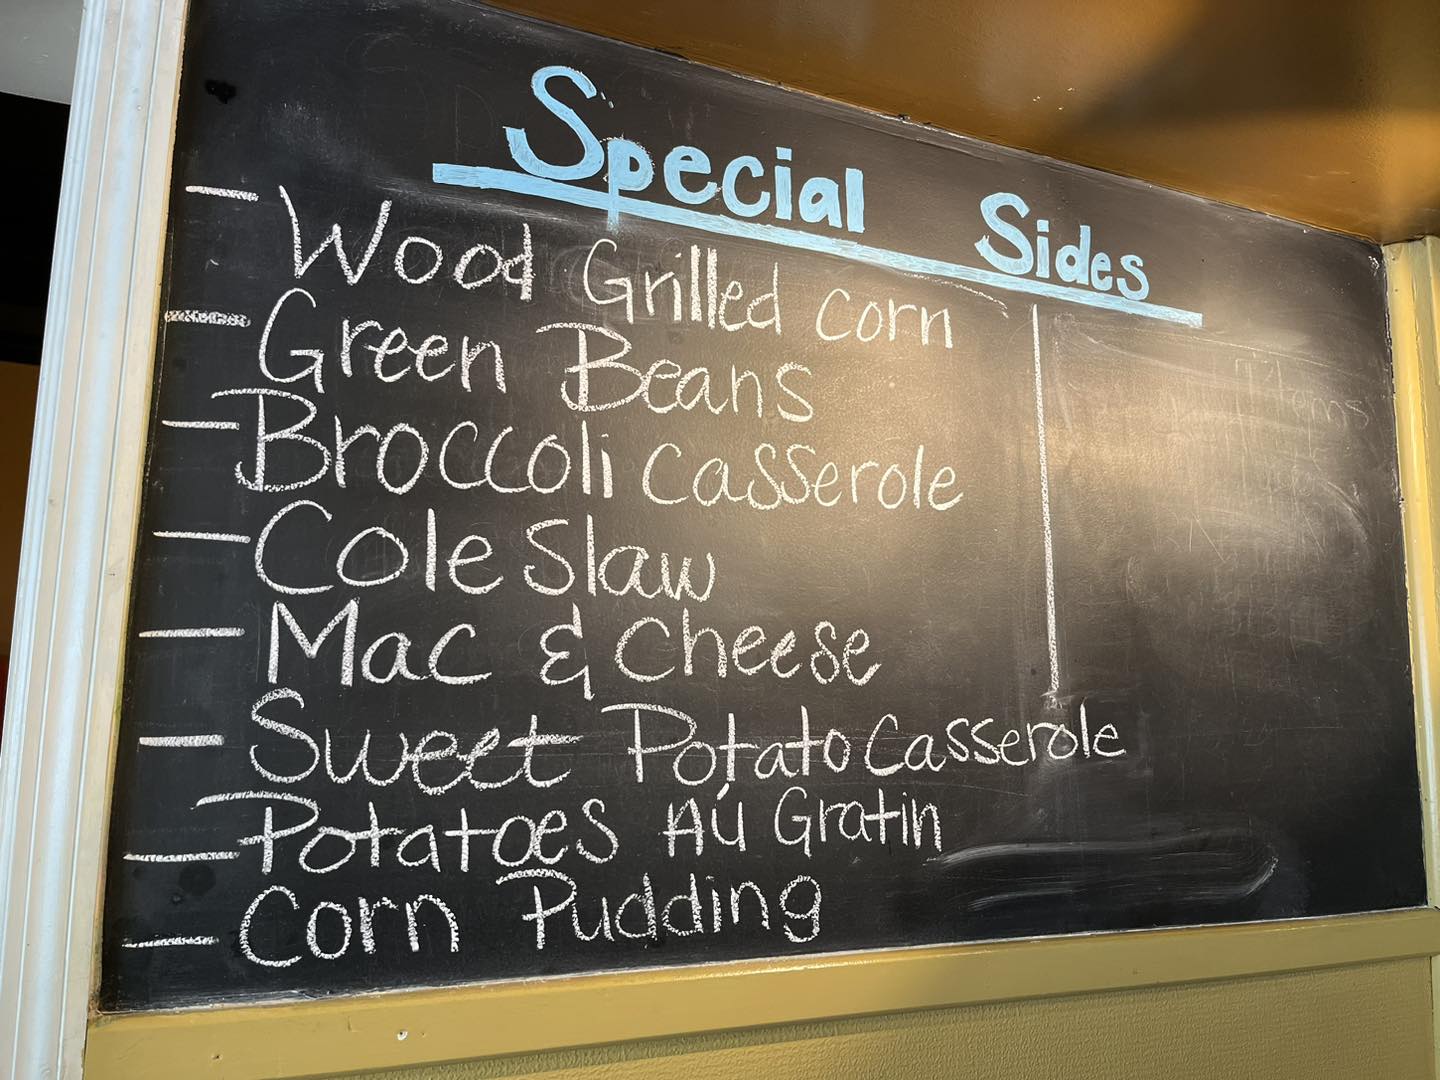 Special Sides
- Wood Grilled Corn
- Green Beans
- Broccoli Casserole
- Cole Slaw
- Mac & Cheese
- Sweet Potato Casserole
- Potatoes Aú Gratin
- Corn Pudding